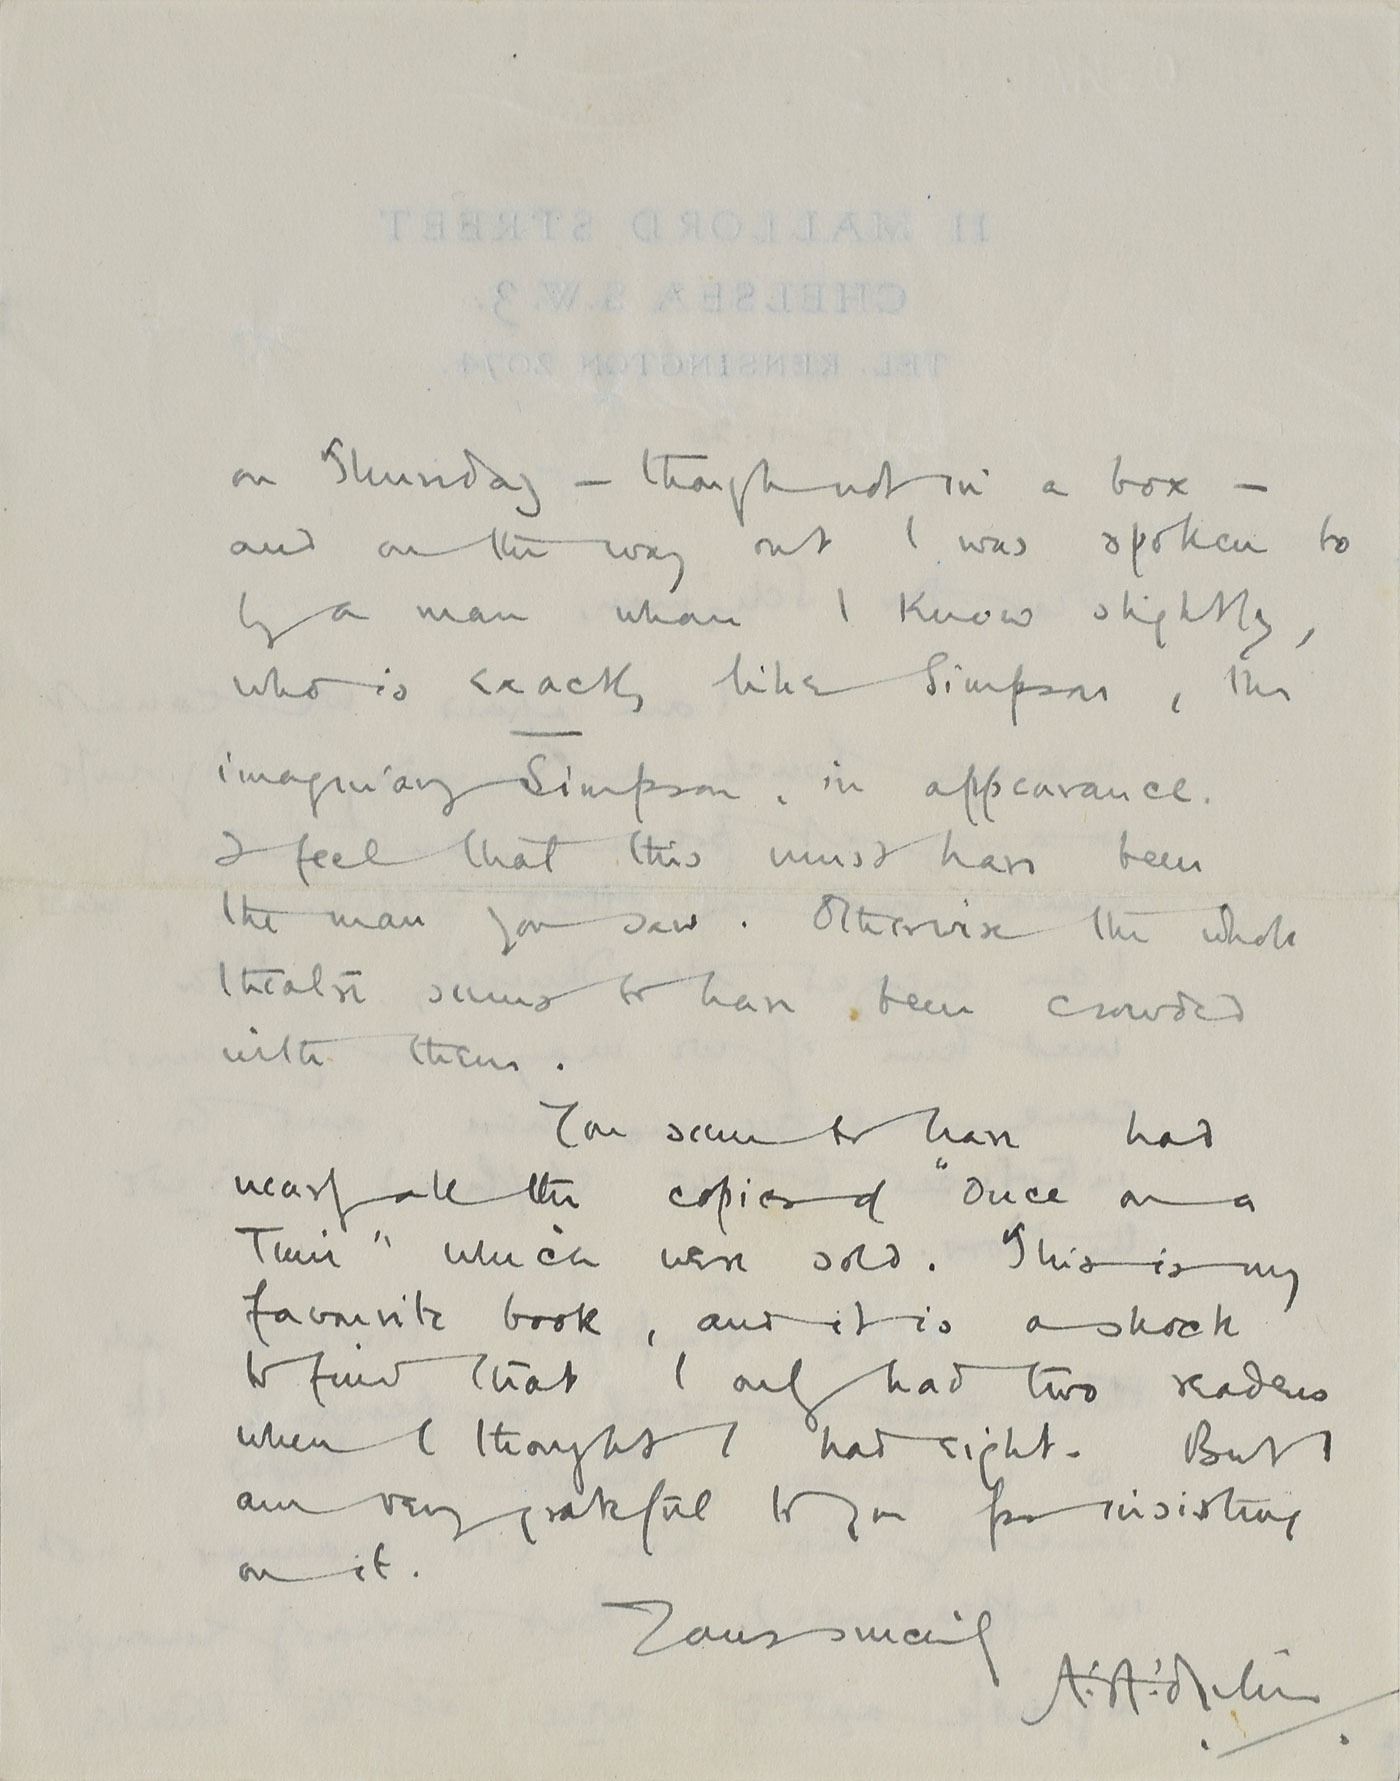 11 MALLORD STREET
CHELSEA S.W.3.
TEL. KENSINGTON 2074.
on Thursday — though not in a box —
and on the way out I was spoken to
by a man whom I know slightly,
who is exactly like Simpson, the
imaginary Simpson, in appearance.
I feel that this must have been
the man you saw. Otherwise the whole
theatre seems to have been crowded
with them.
You seem to have had
nearly all the copies of "Once on a
Time" which were sold. This is my
favourite book, and it is a shock
to find that I only had two readers
when I thought I had eight. But I
am very grateful to you for insisting
on it.
Yours sincerely
A. A. Milne